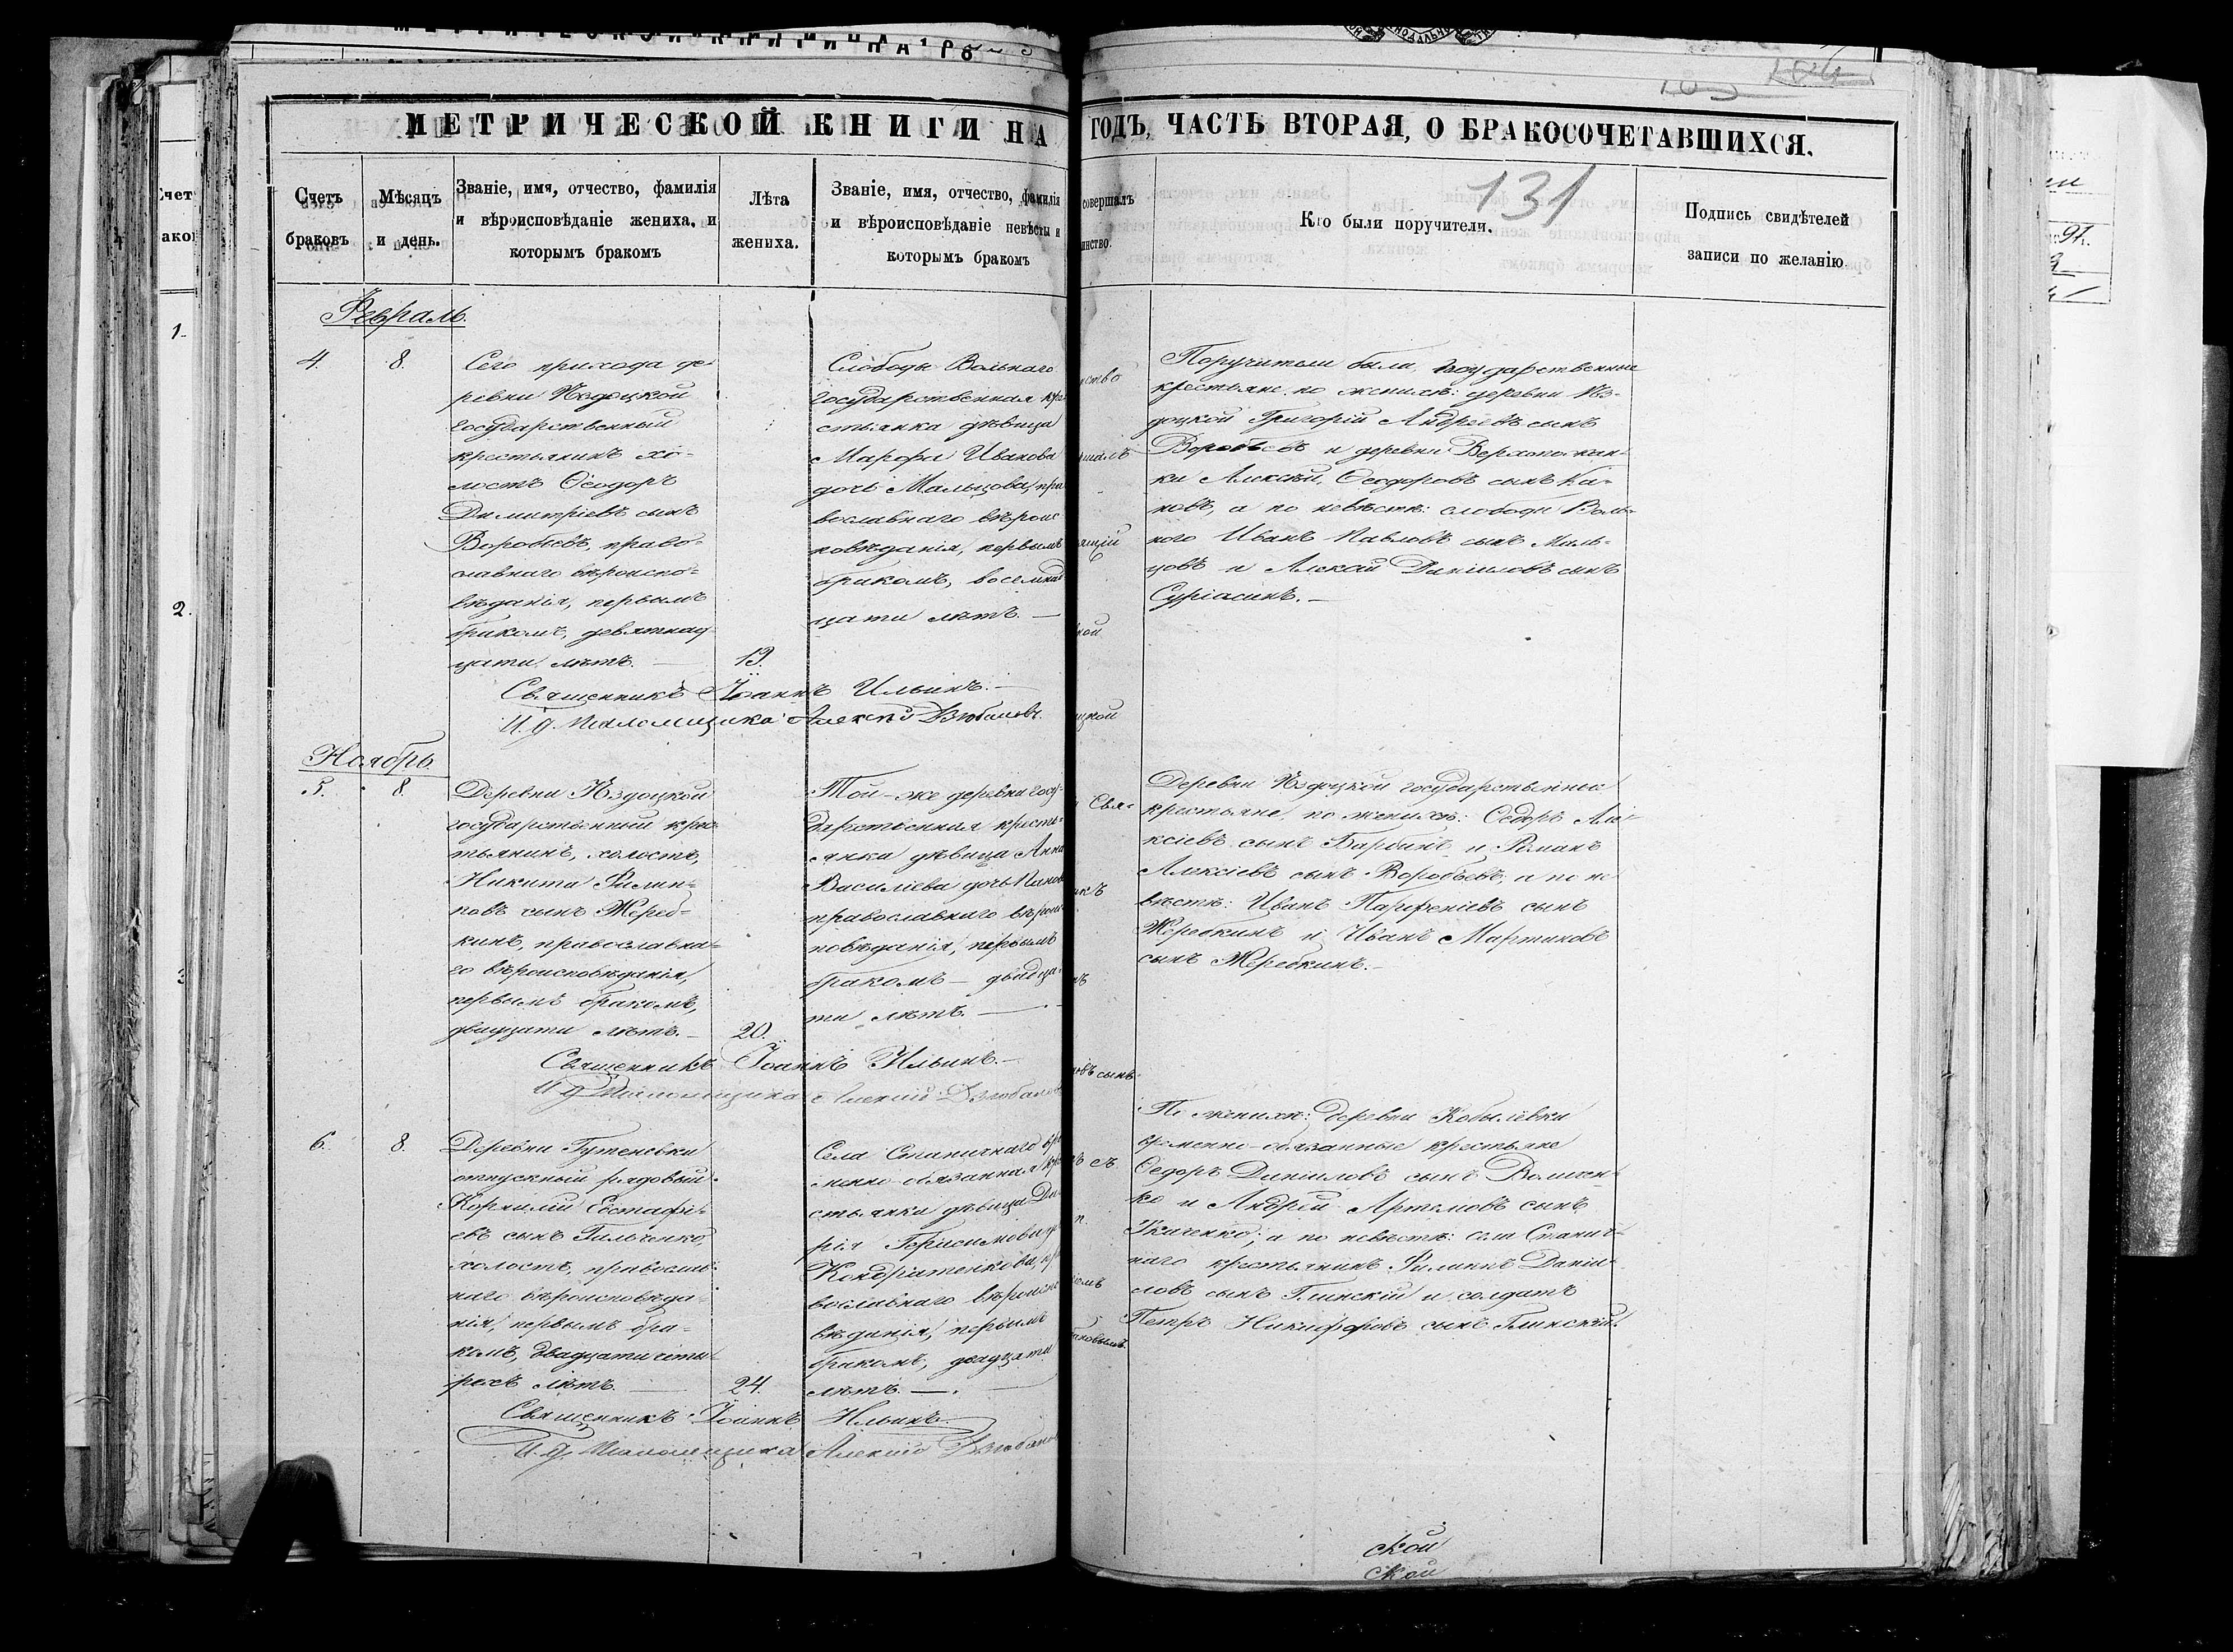 МЕТРИЧЕСКОЙ КНИГИ НА ГОДЪ, ЧАСТЬ ВТОРАЯ, О БРАКОСОЧЕТАВШИХСЯ.
131
Счетъ браковъ
Мѣсяцъ и день.
Званіе, имя, отчество, фамилія
и вѣроисповѣданіе жениха, и
которымъ бракомъ
Лѣта
жениха.
Званіе, имя, отчество, фамилія
и вѣроисповѣданіе невѣсты и
которымъ бракомъ
совершалъ
Кто были поручители.
Подпись свидѣтелей
записи по желанію.
Февраль.
4. 8.
Сего прихода де-
ревни Ѣздоцкой
государственный
крестьянинъ хо-
лостъ Ѳеодоръ
Димитріевъ сынъ
Воробьевъ, право-
славнаго вѣроиспо-
вѣданія, первымъ
бракомъ, девятнад-
цати лѣтъ.
19.
Слободы Вольнаго
государственная кре
стьянка дѣвица
Марѳа Иванова
дочь Мальцова, пра
вославнаго вѣроис
повѣданія, первымъ
бракомъ, восемнад
цати лѣтъ.
Поручители были государственные
крестьяне по женихѣ: деревни Ѣз-
доцкой Григорій Андреевъ сынъ
Воробьевъ и деревни
ки Алексѣй Ѳеодоровъ сынъ
а по невѣстѣ: слободы Воль-
ного Иванъ Павловъ сынъ Маль-
цовъ и Алексѣй Даніиловъ сынъ
Священникъ Іоаннъ Ильинъ.
И. д. Псаломщика Алексѣй Дзюбановъ.
Ноябрь.
5. 8.
Деревни Ѣздоцкой
государственный крес
тьянинъ, холостъ,
Никита Филип-
повъ сынъ Жереб-
кинъ, православна-
го вѣроисповѣданія,
первымъ бракомъ,
двадцати лѣтъ.
20.
Той-же деревни госу-
дарственная кресть-
янка дѣвица Анна
Василіева дочь
православнаго вѣроис
повѣданія, первымъ
бракомъ - двадца-
ти лѣтъ.
Деревни Ѣздоцкой государственные
крестьяне, по женихѣ: Ѳедоръ Але-
ксіевъ сынъ Барбинъ и Романъ
Алексіевъ сынъ Воробьевъ, а по не-
вѣстѣ: Иванъ Парѳеніевъ сынъ
Жеребкинъ и Иванъ Мартиновъ
сынъ Жеребкинъ.
Священникъ Іоаннъ Ильинъ.
И. д. Псаломщика Алексій Дзюбановъ
6. 8.
Деревни Гутеневки
отпускный рядовый
Корнилій Евстафі-
евъ сынъ Гильченко,
холостъ, православ-
наго вѣроисповѣда-
нія, первымъ бра-
комъ, двадцати четы-
рехъ лѣтъ.
24.
Села Станичнаго вре
менно обязанная кре
стьянка дѣвица Да-
рія Герасимова
Кондратенкова, пра
вославнаго вѣроиспо
вѣданія, первымъ
бракомъ, двадцати
лѣтъ.
По женихѣ: деревни Кобылевки
временно-обязанные крестьяне
Ѳедоръ Даніиловъ сынъ Волчен-
ко и Андрей Артемовъ сынъ
Ткаченко; а по невѣстѣ: села Станич-
наго крестьянинъ Филиппъ Даніи-
ловъ сынъ Глинскій и солдатъ
Петръ Никифоровъ сынъ Глинскій.
Священникъ Іоаннъ Ильинъ.
И. д. Псаломщика Алексій Дзюбанов
ской
ской